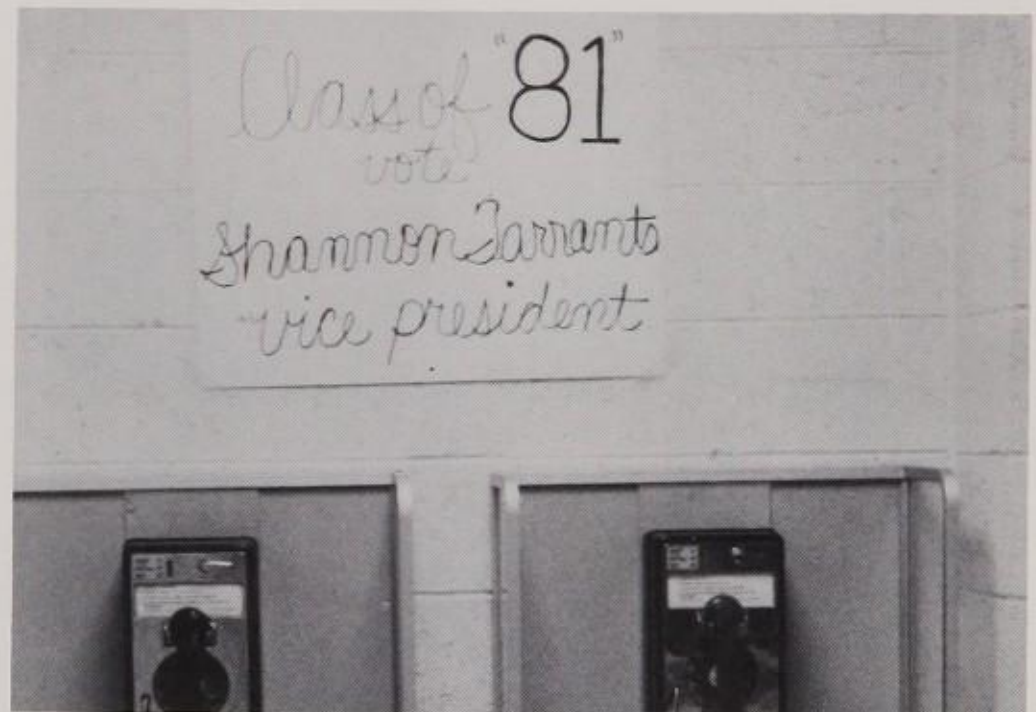 Class of "81"
vote
Shannon Tarrants
vice president